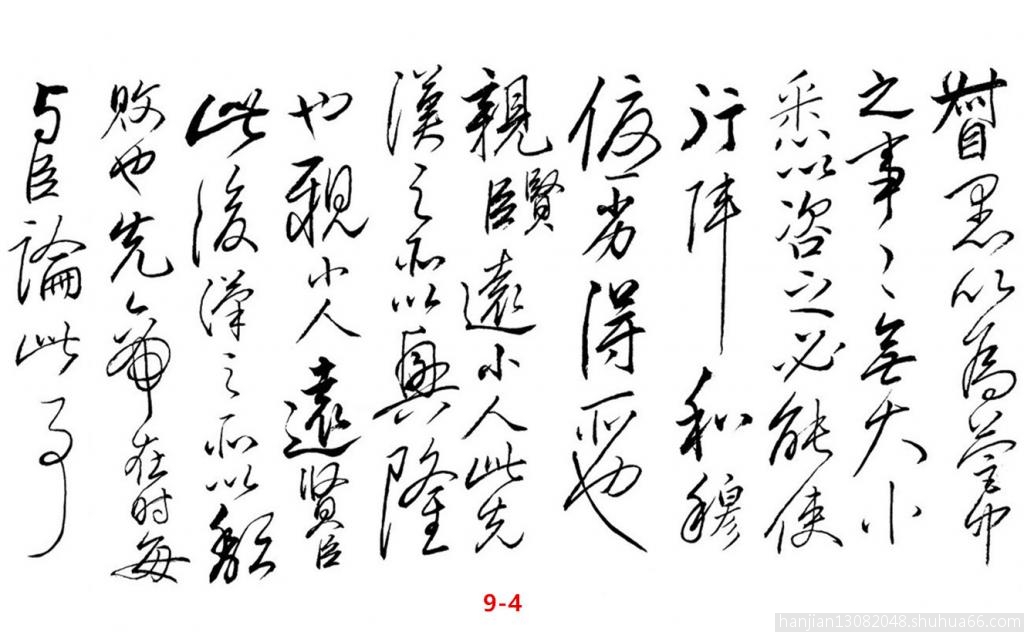 督愚以為營中
之事〻無大小
悉以咨之必能使
行陣和穆
優劣得所也
親賢臣遠小人此先
漢之所以興隆
也親小人遠賢臣
此後漢之所以頹
敗也先帝在时每
与臣論此事
9-4
hanjian13082048.shuhua66.com